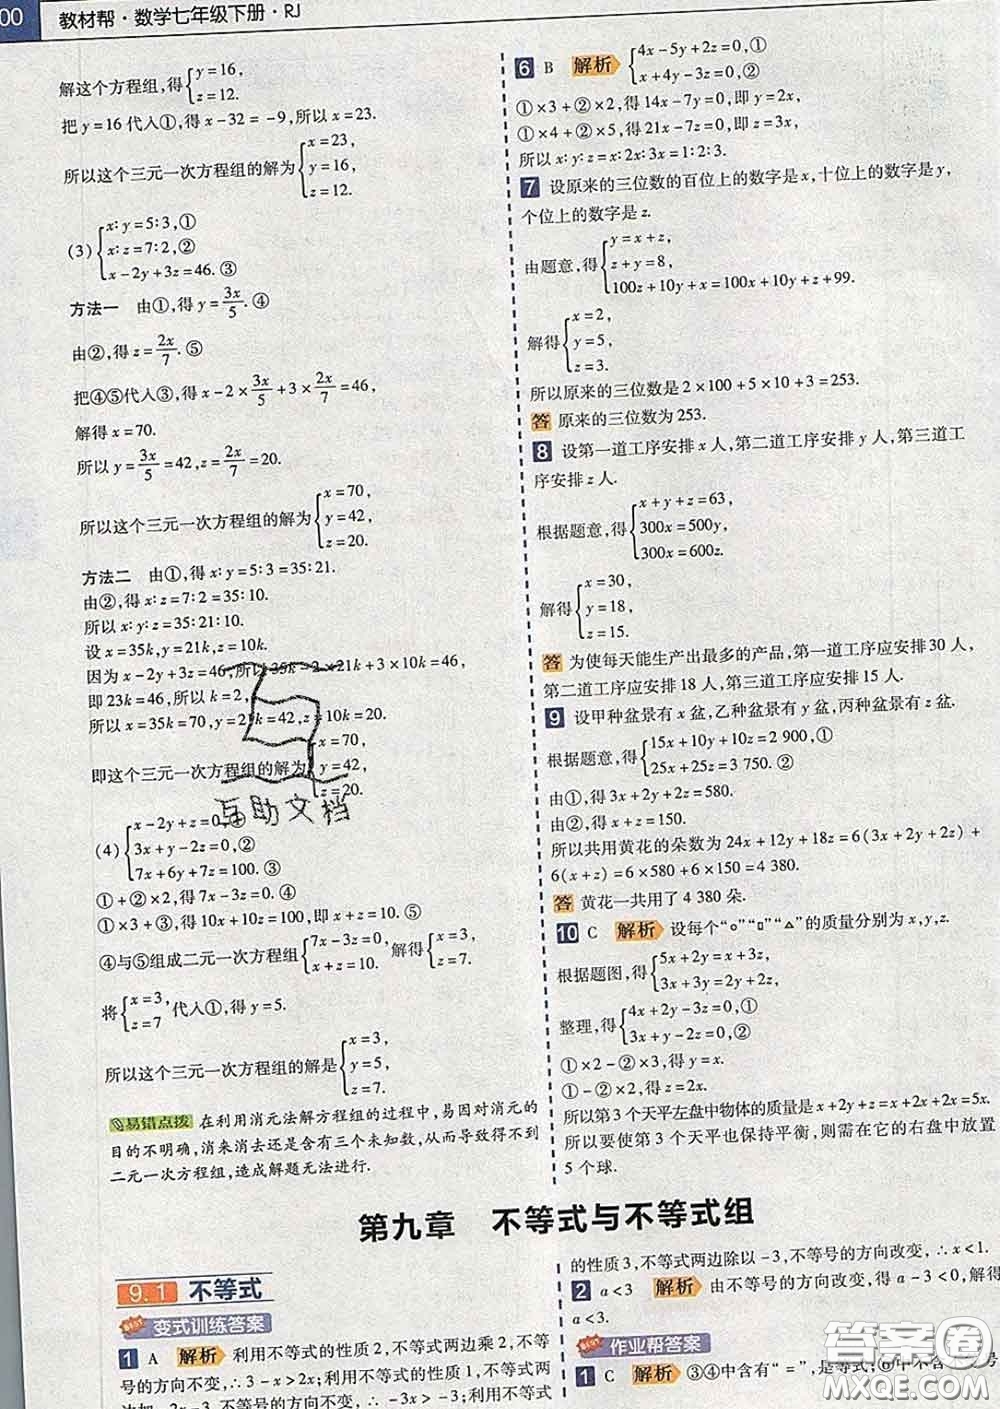 00 教材帮·数学七年级下册·RJ
解这个方程组,得{y=16,
z=12.
把 y=16 代入①,得 x-32=-9,所以 x=23.
所以这个三元一次方程组的解为{x=23,
y=16,
z=12.
(3){x:y=5:3,①
x:z=7:2,②
x-2y+3z=46.③
方法一 由①,得 y=3x/5.④
由②,得 z=2x/7.⑤
把④⑤代入③,得 x-2×3x/5+3×2x/7=46,
解得 x=70.
所以 y=3x/5=42,z=2x/7=20.
所以这个三元一次方程组的解为{x=70,
y=42,
z=20.
方法二 由①,得 x:y=5:3=35:21.
由②,得 x:z=7:2=35:10.
所以 x:y:z=35:21:10.
设 x=35k,y=21k,z=10k.
因为 x-2y+3z=46,所以 35k-2×21k+3×10k=46,
即 23k=46,所以 k=2,
所以 x=35k=70,y=21k=42,z=10k=20.
即这个三元一次方程组的解为{x=70,
y=42,
z=20.
互助文档
(4){x-2y+z=0,①
3x+y-2z=0,②
7x+6y+7z=100.③
①+②×2,得 7x-3z=0.④
①×3+③,得 10x+10z=100,即 x+z=10.⑤
④与⑤组成二元一次方程组{7x-3z=0,
x+z=10.解得{x=3,
z=7.
将{x=3,
z=7代入①,得 y=5.
所以这个三元一次方程组的解是{x=3,
y=5,
z=7.
易错点拨 在利用消元法解方程组的过程中,易因对消元的
目的不明确,消来消去还是含有三个未知数,从而导致得不到
二元一次方程组,造成解题无法进行.
6 B 解析 {4x-5y+2z=0,①
x+4y-3z=0,②
①×3+②×2,得 14x-7y=0,即 y=2x,
①×4+②×5,得 21x-7z=0,即 z=3x,
所以 x:y:z=x:2x:3x=1:2:3.
7 设原来的三位数的百位上的数字是 x,十位上的数字是 y,
个位上的数字是 z.
由题意,得{y=x+z,
z+y=8,
100z+10y+x=100x+10y+z+99.
解得{x=2,
y=5,
z=3.
所以原来的三位数是 2×100+5×10+3=253.
答 原来的三位数为 253.
8 设第一道工序安排 x 人,第二道工序安排 y 人,第三道工
序安排 z 人.
根据题意,得{x+y+z=63,
300x=500y,
300x=600z.
解得{x=30,
y=18,
z=15.
答 为使每天能生产出最多的产品,第一道工序应安排 30 人,
第二道工序应安排 18 人,第三道工序应安排 15 人.
9 设甲种盆景有 x 盆,乙种盆景有 y 盆,丙种盆景有 z 盆.
根据题意,得{15x+10y+10z=2 900,①
25x+25z=3 750.②
由①,得 3x+2y+2z=580.
由②,得 x+z=150.
所以共用黄花的朵数为 24x+12y+18z=6(3x+2y+2z)+
6(x+z)=6×580+6×150=4 380.
答 黄花一共用了 4 380 朵.
10 C 解析 设每个“○”“□”“△”的质量分别为 x,y,z.
根据题图,得{5x+2y=x+3z,
3x+3y=2y+2z,
整理,得{4x+2y-3z=0,①
3x+y-2z=0,②
①×2-②×3,得 y=x.
①-②×2,得 z=2x.
所以第 3 个天平左盘中物体的质量是 x+2y+z=x+2x+2x=5x.
所以要使第 3 个天平也保持平衡,则需在它的右盘中放置
5 个球.
第九章 不等式与不等式组
9.1 不等式
BEST 变式训练答案
1 A 解析 利用不等式的性质 2,不等式两边乘 2,不等
号的方向不变,∴3-x>2x;利用不等式的性质 1,不等式两
边加-2x,不等号的方向不变,∴-3x>-3;利用不等式
的性质 3,不等式两边除以-3,不等号的方向改变,∴x<1.
2 a<3 解析 由不等号的方向改变,得 a-3<0,解得
a<3.
BEST 作业帮答案
1 C 解析 ③④中含有“=”,是等式;⑥中不含
答案圈
MXQE.COM